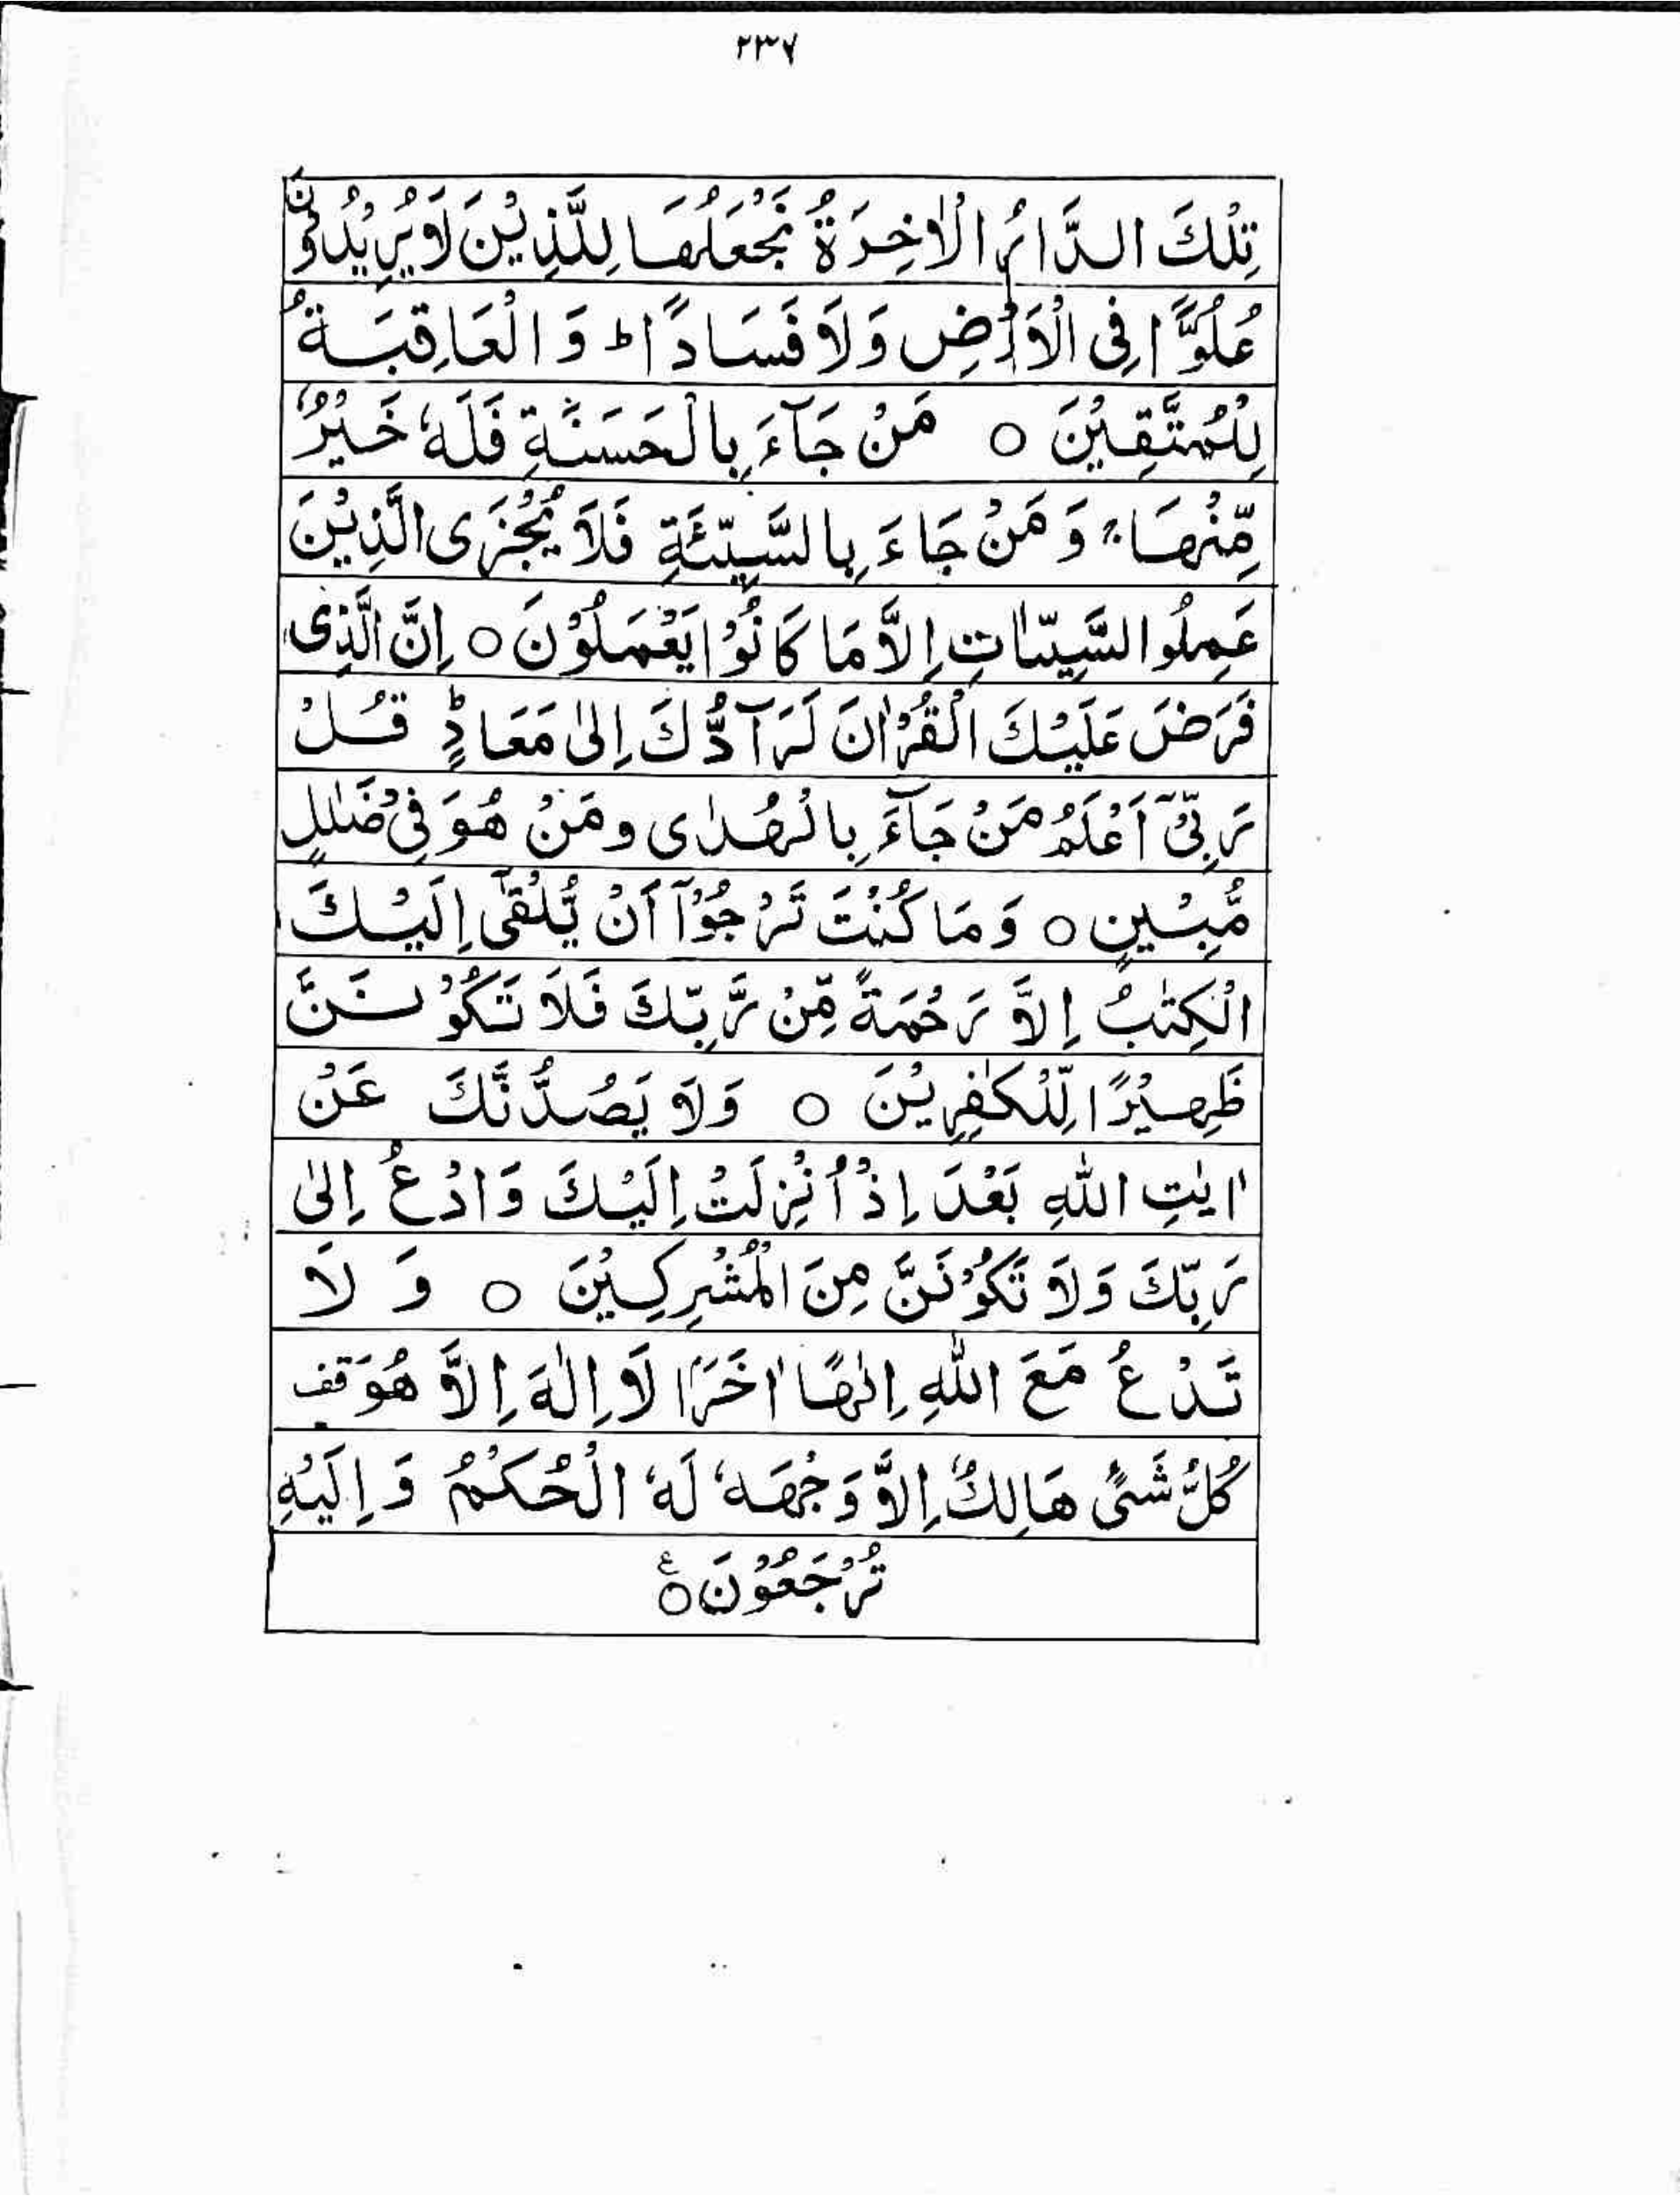 ۲۳۷
تِلْكَ الدَّارُ الْاٰخِرَةُ نَجْعَلُهَا لِلَّذِيْنَ لَا يُرِيْدُوْنَ
عُلُوًّا فِى الْاَرْضِ وَلَا فَسَادًا ؕ وَ الْعَاقِبَةُ
لِلْمُتَّقِيْنَ ○ مَنْ جَآءَ بِالْحَسَنَةِ فَلَهٗ خَيْرٌ
مِّنْهَا ۚ وَ مَنْ جَاءَ بِالسَّيِّئَةِ فَلَا يُجْزَى الَّذِيْنَ
عَمِلُوا السَّيِّاٰتِ اِلَّا مَا كَانُوْا يَعْمَلُوْنَ ○ اِنَّ الَّذِى
فَرَضَ عَلَيْكَ الْقُرْاٰنَ لَرَآدُّكَ اِلٰى مَعَادٍ ؕ قُلْ
رَبِّىْٓ اَعْلَمُ مَنْ جَآءَ بِالْهُدٰى ومَنْ هُوَ فِىْ ضَلٰلٍ
مُّبِيْنٍ ○ وَ مَا كُنْتَ تَرْجُوْٓا اَنْ يُّلْقٰٓى اِلَيْكَ
الْكِتٰبُ اِلَّا رَحْمَةً مِّنْ رَّبِّكَ فَلَا تَكُوْنَنَّ
ظَهِيْرًا لِّلْكٰفِرِيْنَ ○ وَلَا يَصُدُّنَّكَ عَنْ
اٰيٰتِ اللّٰهِ بَعْدَ اِذْ اُنْزِلَتْ اِلَيْكَ وَادْعُ اِلٰى
رَبِّكَ وَلَا تَكُوْنَنَّ مِنَ الْمُشْرِكِيْنَ ○ وَ لَا
تَدْعُ مَعَ اللّٰهِ اِلٰهًا اٰخَرَ ۘ لَا اِلٰهَ اِلَّا هُوَ قف
كُلُّ شَىْءٍ هَالِكٌ اِلَّا وَجْهَهٗ لَهُ الْحُكْمُ وَ اِلَيْهِ
تُرْجَعُوْنَ ○ ع